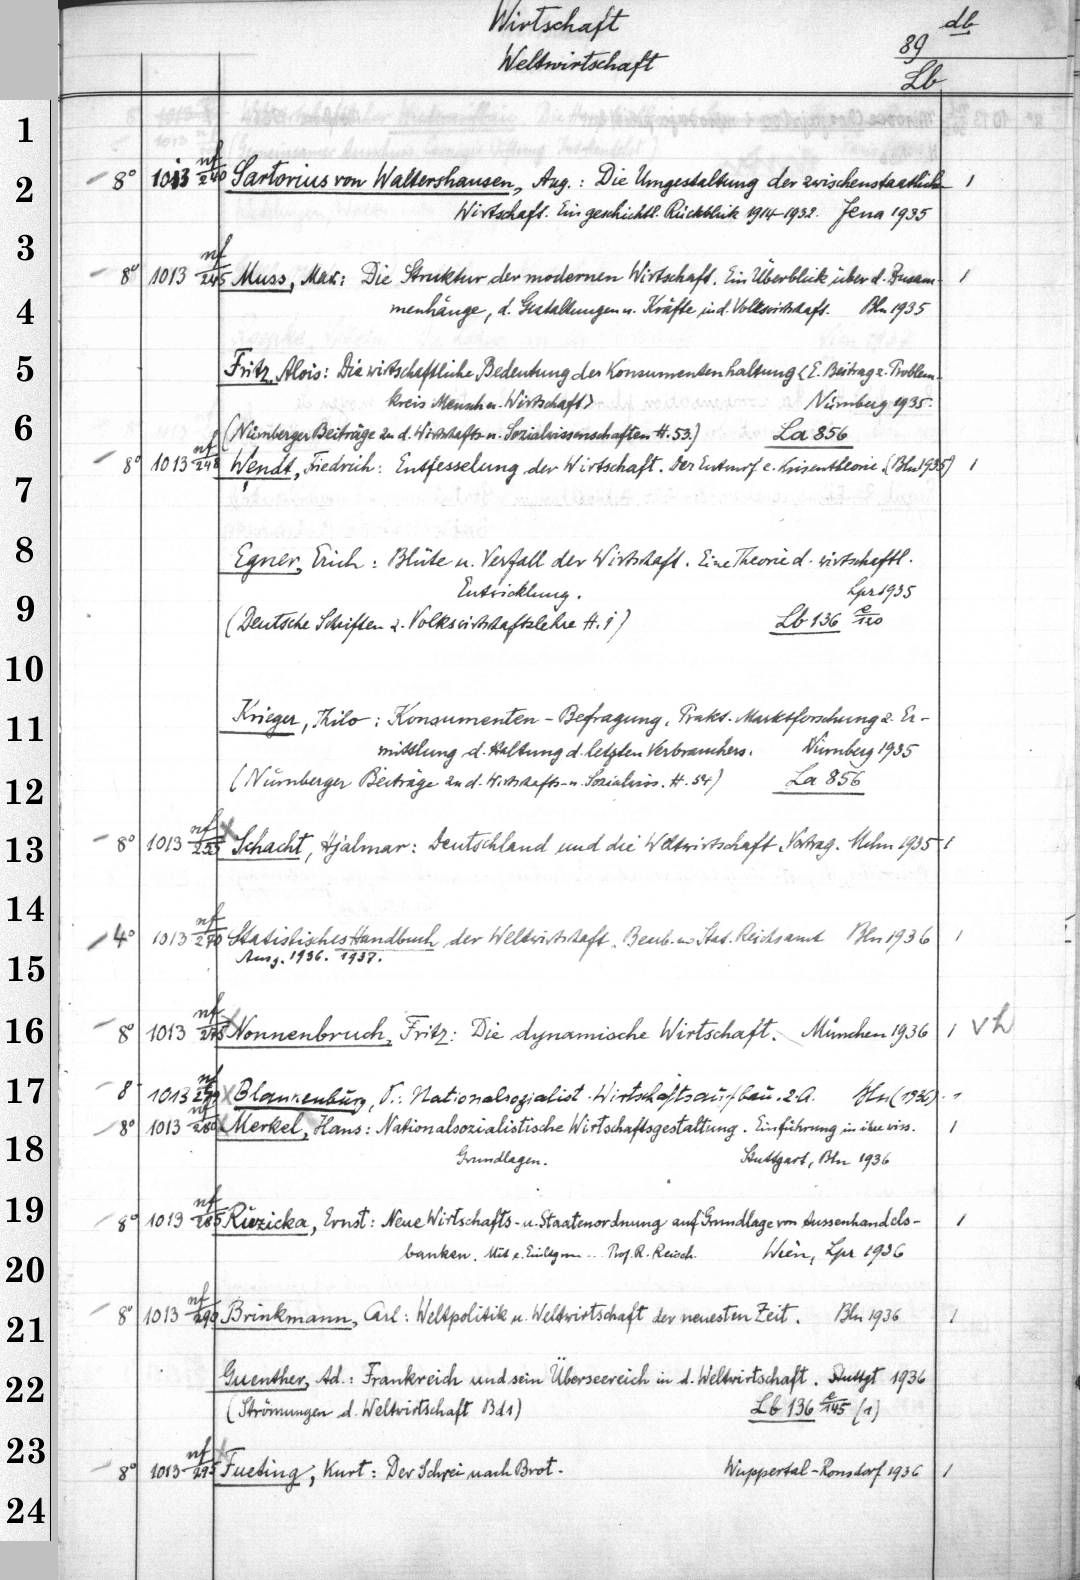 Wirtschaft db
Weltwirtschaft 89
Lb
1
2 8° 1013 nf/240 Sartorius von Waltershausen, Aug.: Die Umgestaltung der zwischenstaatlich. 1
Wirtschaft. Ein geschichtl. Rückblick 1914-1932. Jena 1935
3
8° 1013 nf/245 Muss, Max: Die Struktur der modernen Wirtschaft. Ein Überblick über d. Zusam- 1
4 menhänge, d. Gestaltungen u. Kräfte in d. Volkswirtschaft. Bln 1935
5 Fritz, Alois: Die wirtschaftliche Bedeutung der Konsumentenhaltung <E. Beitrag z. Problem-
kreis Mensch u. Wirtschaft> Nürnberg 1935.
6 (Nürnberger Beiträge zu d. Wirtschafts- u. Sozialwissenschaften H. 53.) La 856
8° 1013 nf/248 Wendt, Friedrich: Entfesselung der Wirtschaft. Der Entwurf e. Krisentheorie. (Bln 1935) 1
7
8 Egner, Erich: Blüte u. Verfall der Wirtschaft. Eine Theorie d. wirtschaftl.
Entwicklung. Lpz 1935
9 (Deutsche Schriften z. Volkswirtschaftslehre H. 1) Lb 136 e/120
10
11 Krieger, Thilo: Konsumenten-Befragung, Prakt. Marktforschung z. Er-
mittlung d. Haltung d. letzten Verbrauchers. Nürnberg 1935
12 (Nürnberger Beiträge zu d. Wirtschafts- u. Sozialwiss. H. 54) La 856
13 8° 1013 nf/255 x Schacht, Hjalmar: Deutschland und die Weltwirtschaft. Vortrag. Mchn 1935 1
14
4° 1013 nf/270 Statistisches Handbuch der Weltwirtschaft. Bearb. v. Stat. Reichsamt Bln 1936 1
15 Ausg. 1936. 1937.
16 8° 1013 nf/275 x Nonnenbruch, Fritz: Die dynamische Wirtschaft. München 1936 1 vh
17 8 1013 nf/277 x Blankenburg, P.: Nationalsozialist. Wirtschaftsaufbau. 2. A. Bln (1936). 1
8° 1013 nf/280 x Merkel, Hans: Nationalsozialistische Wirtschaftsgestaltung. Einführung in ihre wiss. 1
18 Grundlagen. Stuttgart, Bln 1936
19 8° 1013 nf/285 Růzicka, Ernst: Neue Wirtschafts- u. Staatenordnung auf Grundlage von Aussenhandels- 1
20 banken. Mit e. Einltgn ... Prof. R. Reisch. Wien, Lpz 1936
21 8° 1013 nf/290 Brinkmann, Carl: Weltpolitik u. Weltwirtschaft der neuesten Zeit. Bln 1936 1
22 Guenther, Ad.: Frankreich und sein Überseereich in d. Weltwirtschaft. Stuttgt 1936
(Strömungen d. Weltwirtschaft Bd 1) Lb 136 e/145 (1)
23 8° 1013 nf/295 x Fueting, Kurt: Der Schrei nach Brot. Wuppertal-Ronsdorf 1936 1
24